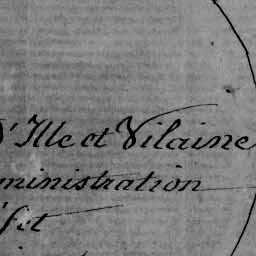 d'Ille et Vilaine
ministration